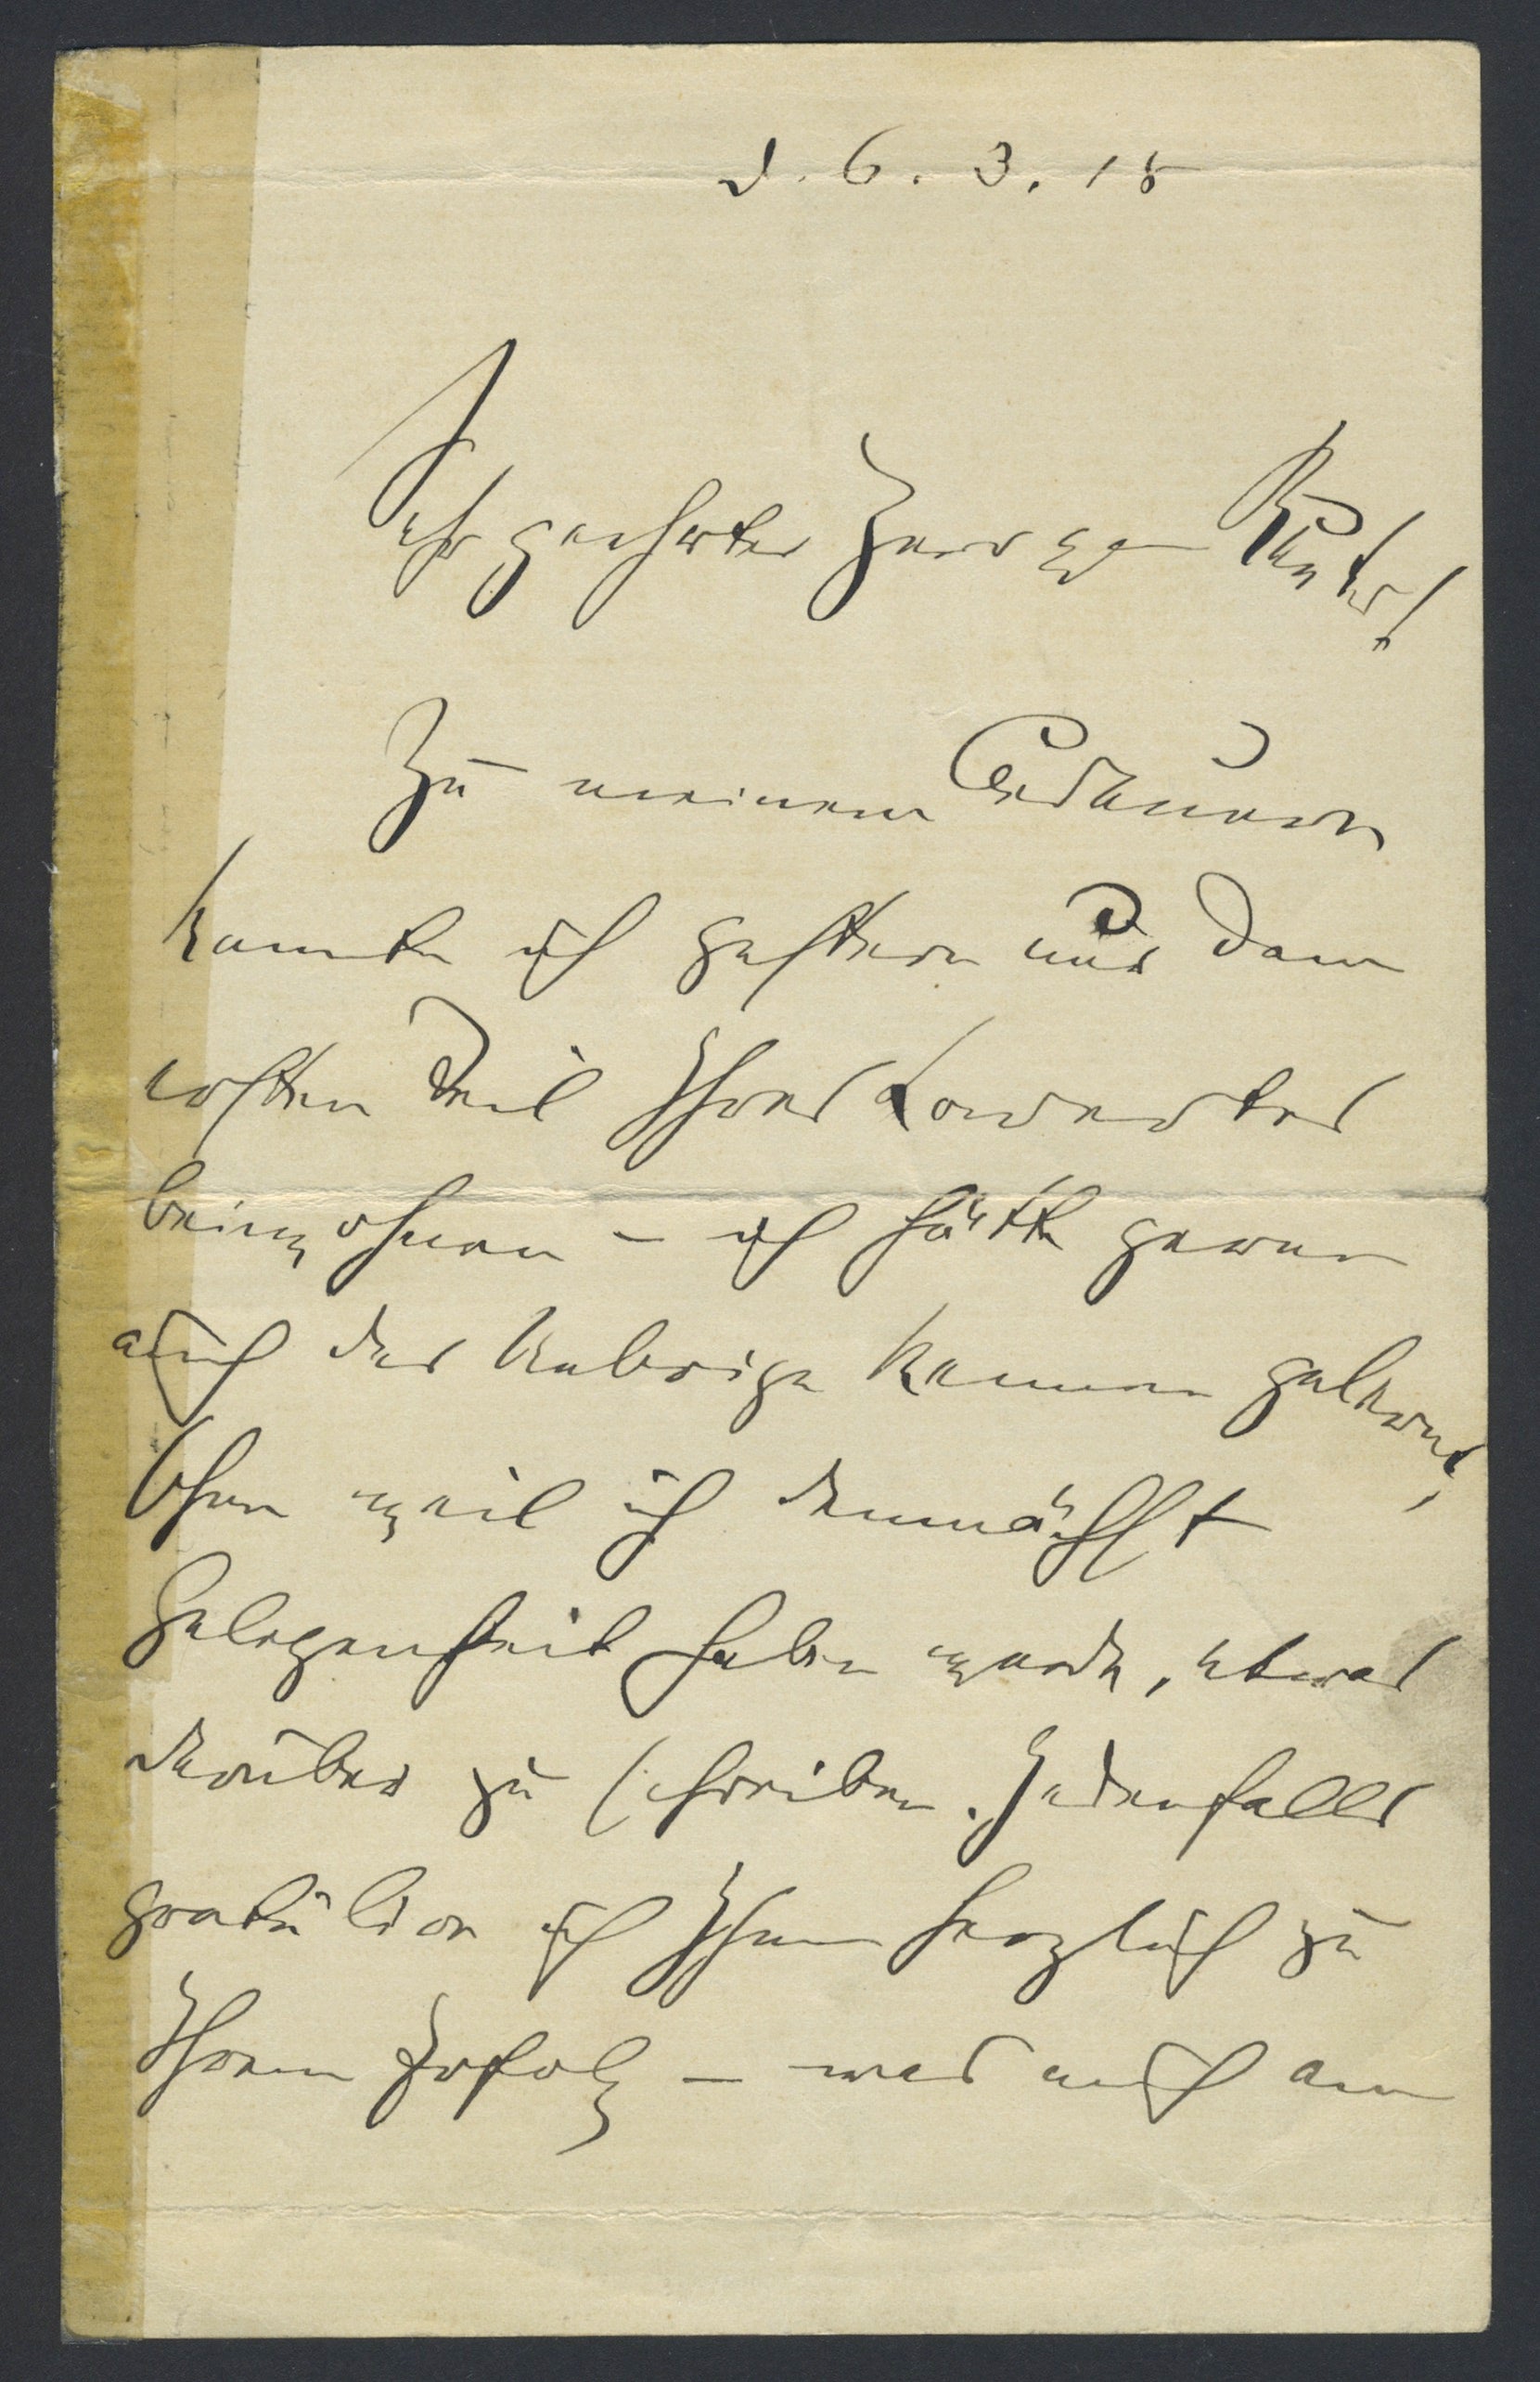 d. 6. 3. 18
Sehr geehrter Herr von
Zu meinem Bedauern
konnte ich gestern nur dem
ersten Teil Ihres Konzertes
beiwohnen – ich hätte gerne
auch das Uebrige kennen gelernt,
schon weil ich demnächst
Gelegenheit haben werde, etwas
darüber zu schreiben. Jedenfalls
gratuliere ich Ihnen herzlich zu
Ihrem Erfolg – was auch am